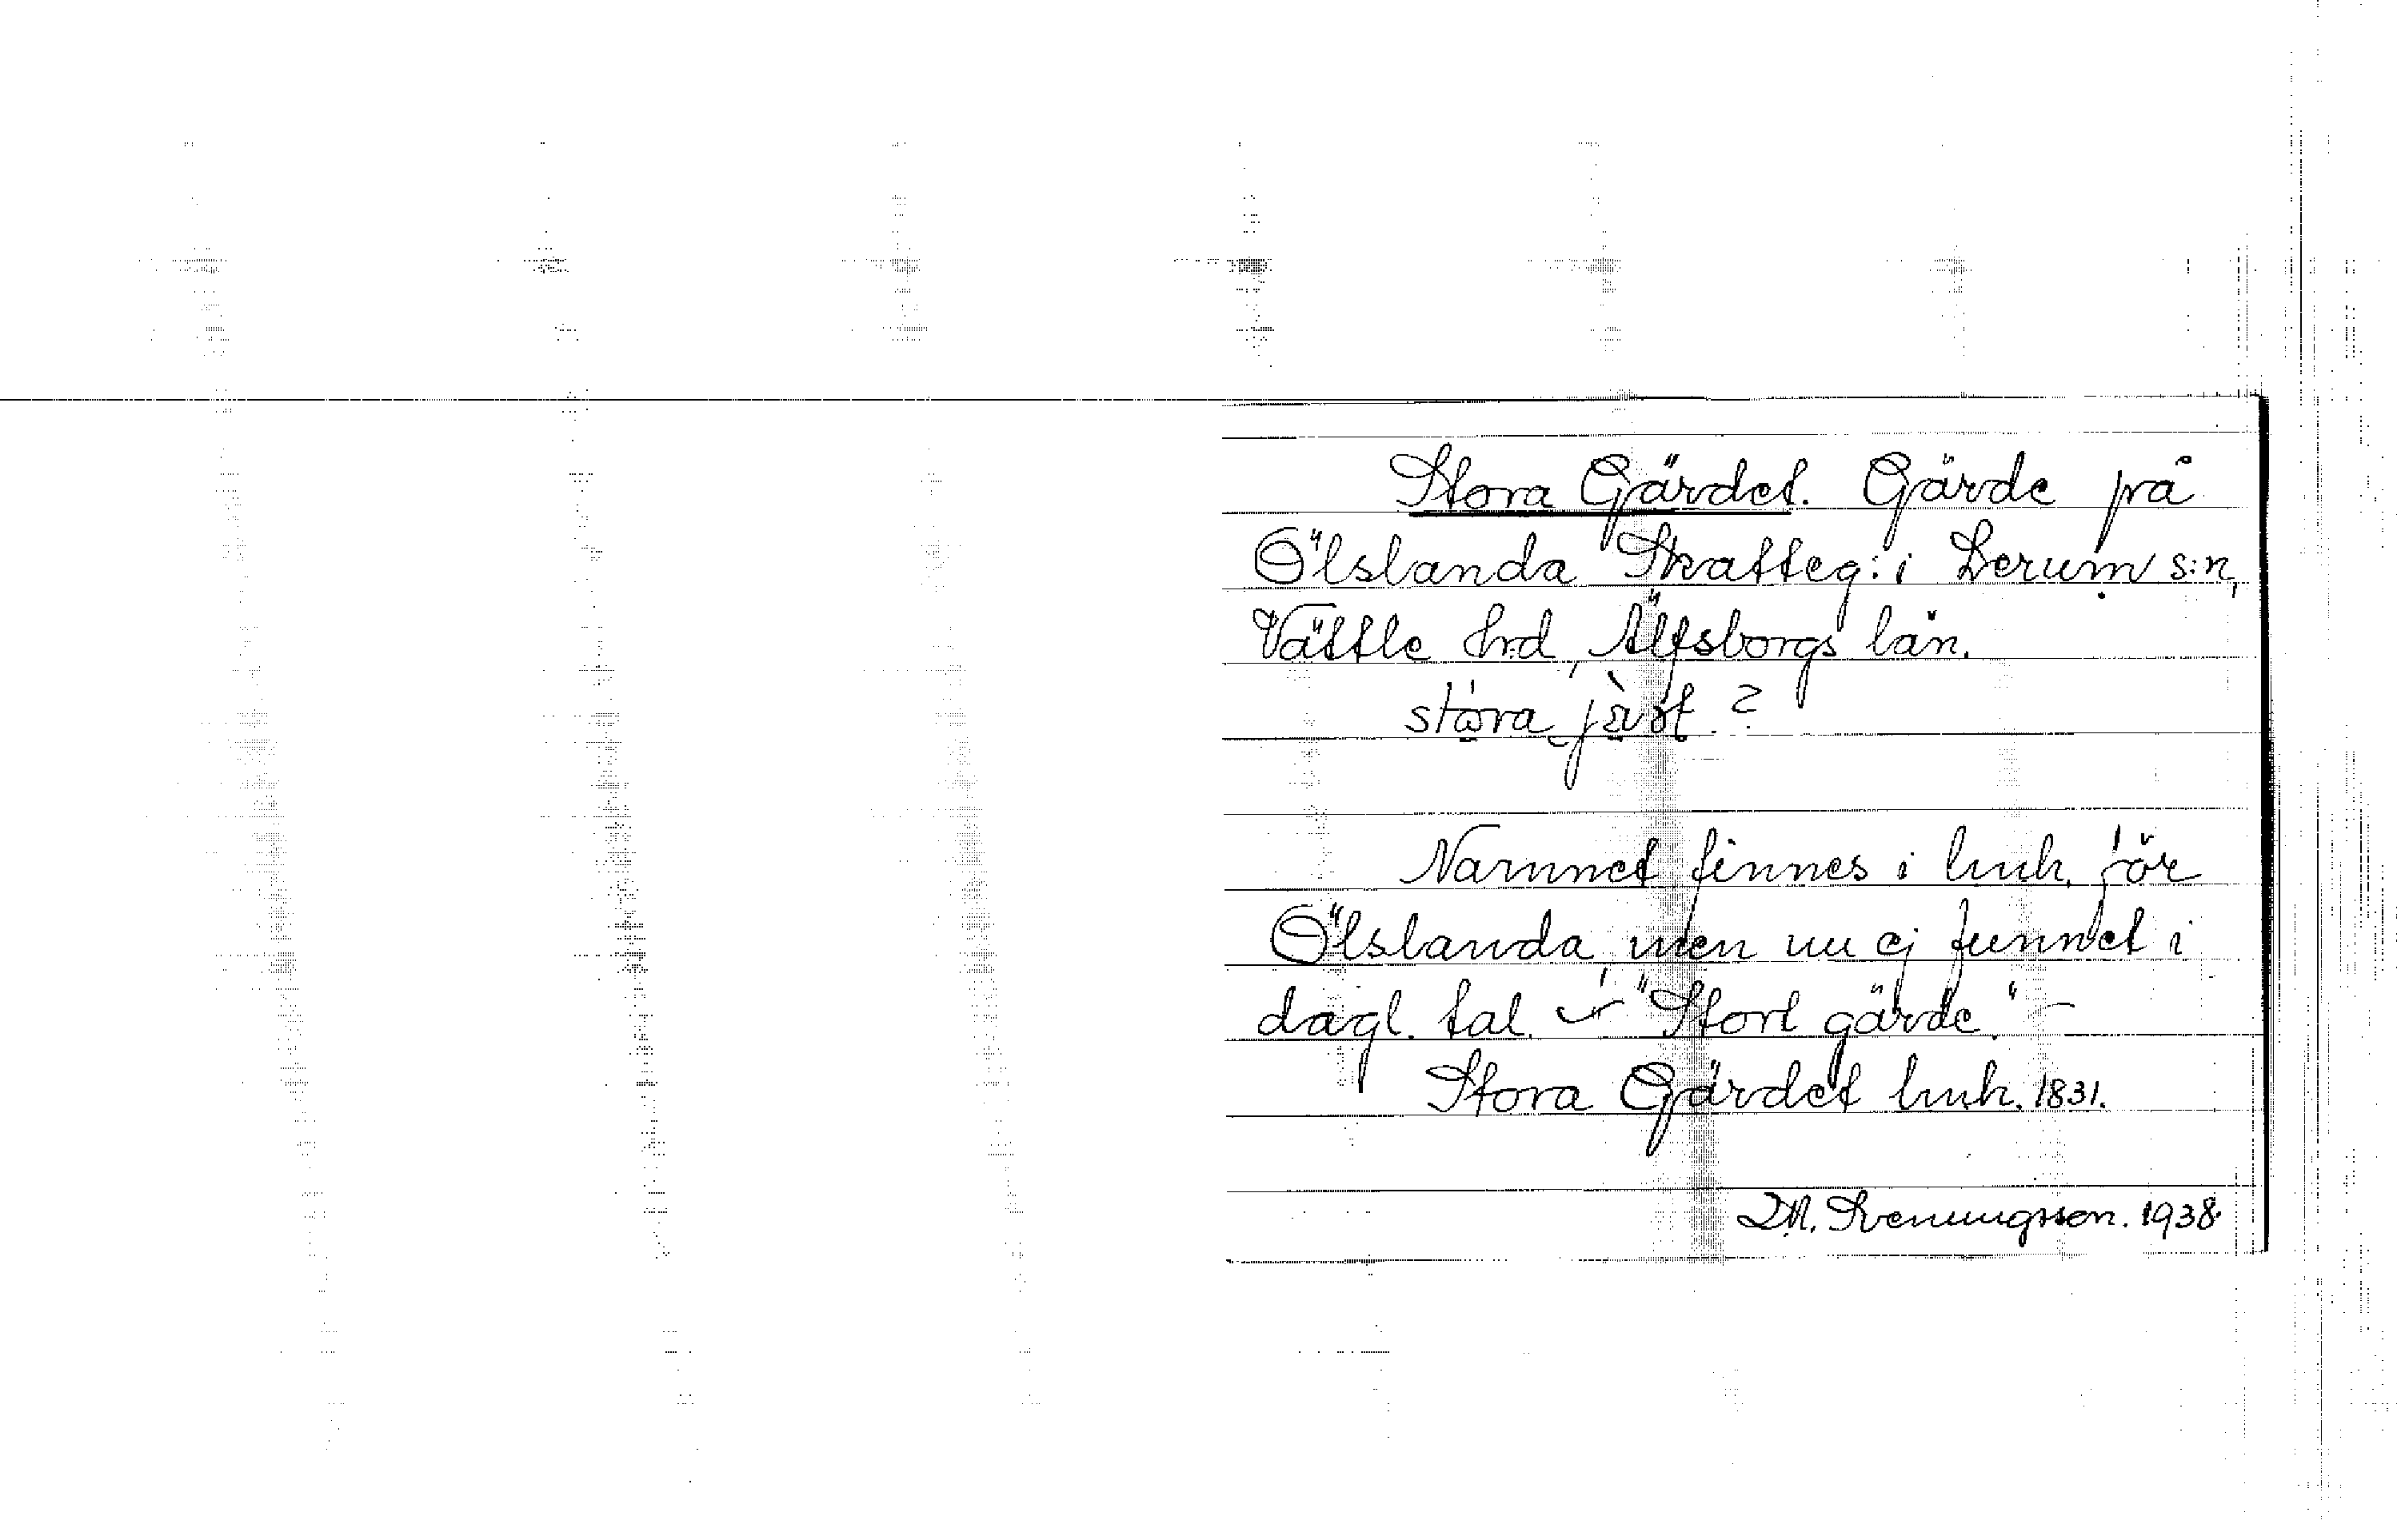 Stora Gärdet. Gärde på
Ölslanda Skatteg: i Lerum s:n,
Vättle hrd, Älfsborgs län.
stora
Namnet finnes i hmh. för
Ölslanda, men nu ej funnet i
dagl. tal. "Stort gärde."
Stora Gärdet hmh. 1831.
Svenungsson. 1938